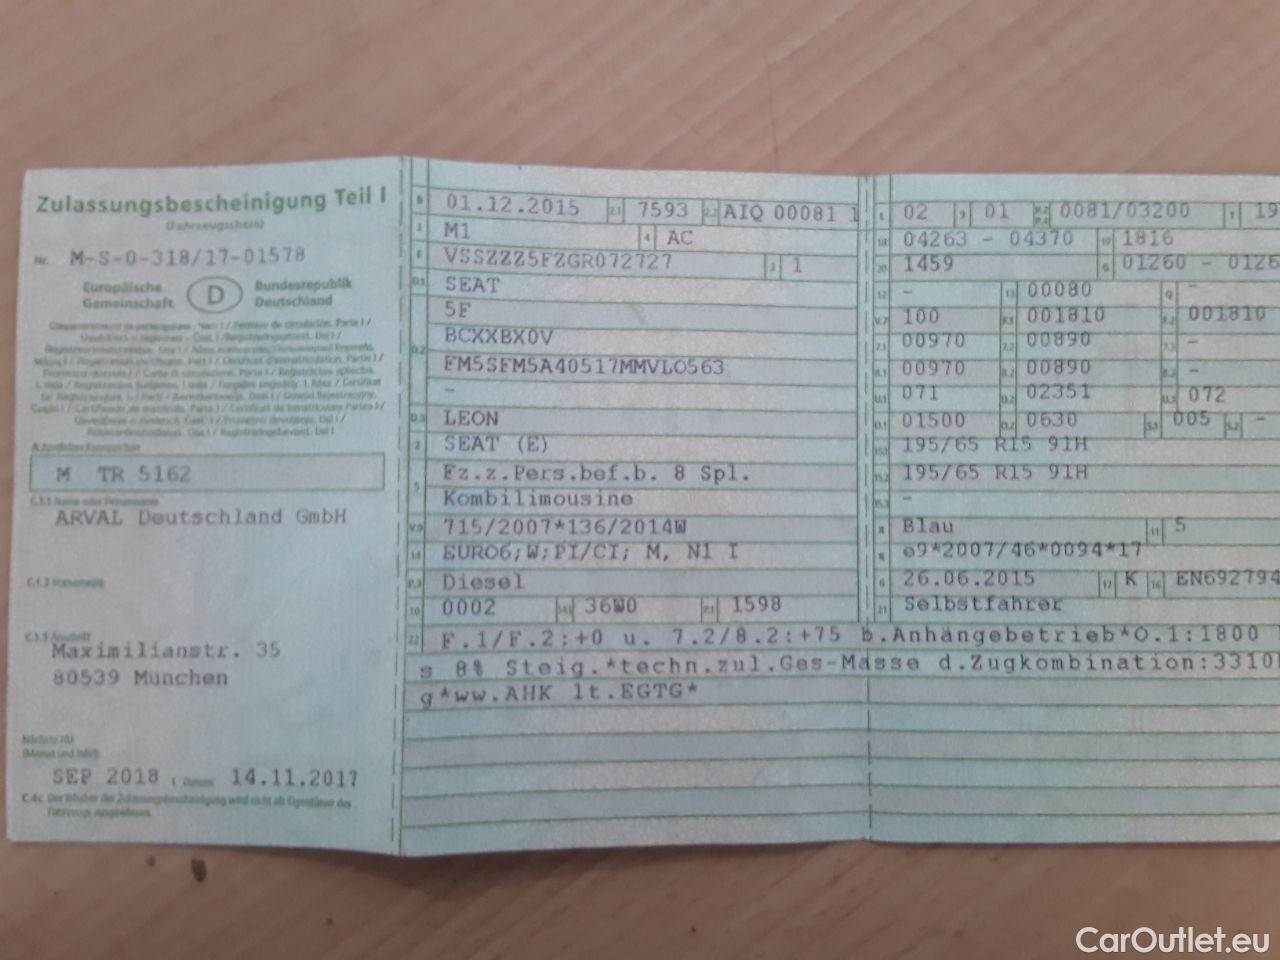 Zulassungsbescheinigung Teil I
(Fahrzeugschein)
Nr. M-S-0-318/17-01578
Europäische Gemeinschaft
D
Bundesrepublik Deutschland
A Amtliches Kennzeichen
M TR 5162
C.1.1 Name oder Firmenname
ARVAL Deutschland GmbH
C.1.2 Vorname(n)
C.1.3 Anschrift
Maximilianstr. 35
80539 München
Nächste HU
(Monat und Jahr)
SEP 2018 I Datum: 14.11.2017
C.4c Der Inhaber der Zulassungsbescheinigung wird nicht als Eigentümer des
Fahrzeugs ausgewiesen.
B 01.12.2015 2.1 7593 2.2 AIQ 00081 1
J M1 4 AC
E VSSZZZ5FZGR072727 3 1
D.1 SEAT
5F
D.2 BCXXBX0V
FM5SFM5A40517MMVLO563
-
D.3 LEON
2 SEAT (E)
5 Fz.z.Pers.bef.b. 8 Spl.
Kombilimousine
V.9 715/2007*136/2014W
14 EURO6;W;PI/CI; M, N1 I
P.3 Diesel
10 0002 14.1 36W0 P.1 1598
L 02 9 01 P.2 P.4 0081/03200 T 19
18 04263 - 04370 19 1816
20 1459 G 01260 - 0126
12 - 13 00080 Q -
V.7 100 F.1 001810 F.2 001810
7.1 00970 7.2 00890 7.3 -
8.1 00970 8.2 00890 8.3 -
U.1 071 U.2 02351 U.3 072
O.1 01500 O.2 0630 S.1 005 S.2 -
15.1 195/65 R15 91H
15.2 195/65 R15 91H
15.3 -
R Blau 11 5
K e9*2007/46*0094*17
6 26.06.2015 17 K 16 EN692794
21 Selbstfahrer
22 F.1/F.2:+0 u. 7.2/8.2:+75 b.Anhängebetrieb*O.1:1800
s 8% Steig.*techn.zul.Ges-Masse d.Zugkombination:3310
g*ww.AHK lt.EGTG*
CarOutlet.eu